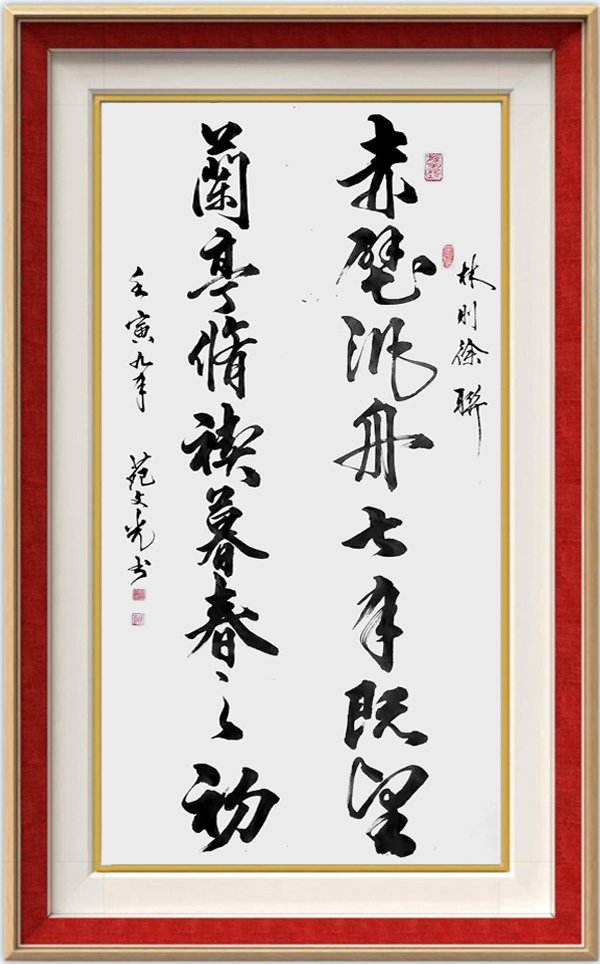 林则徐聯
赤壁汎舟七月既望
蘭亭脩禊暮春之初
壬寅九月 范文光书